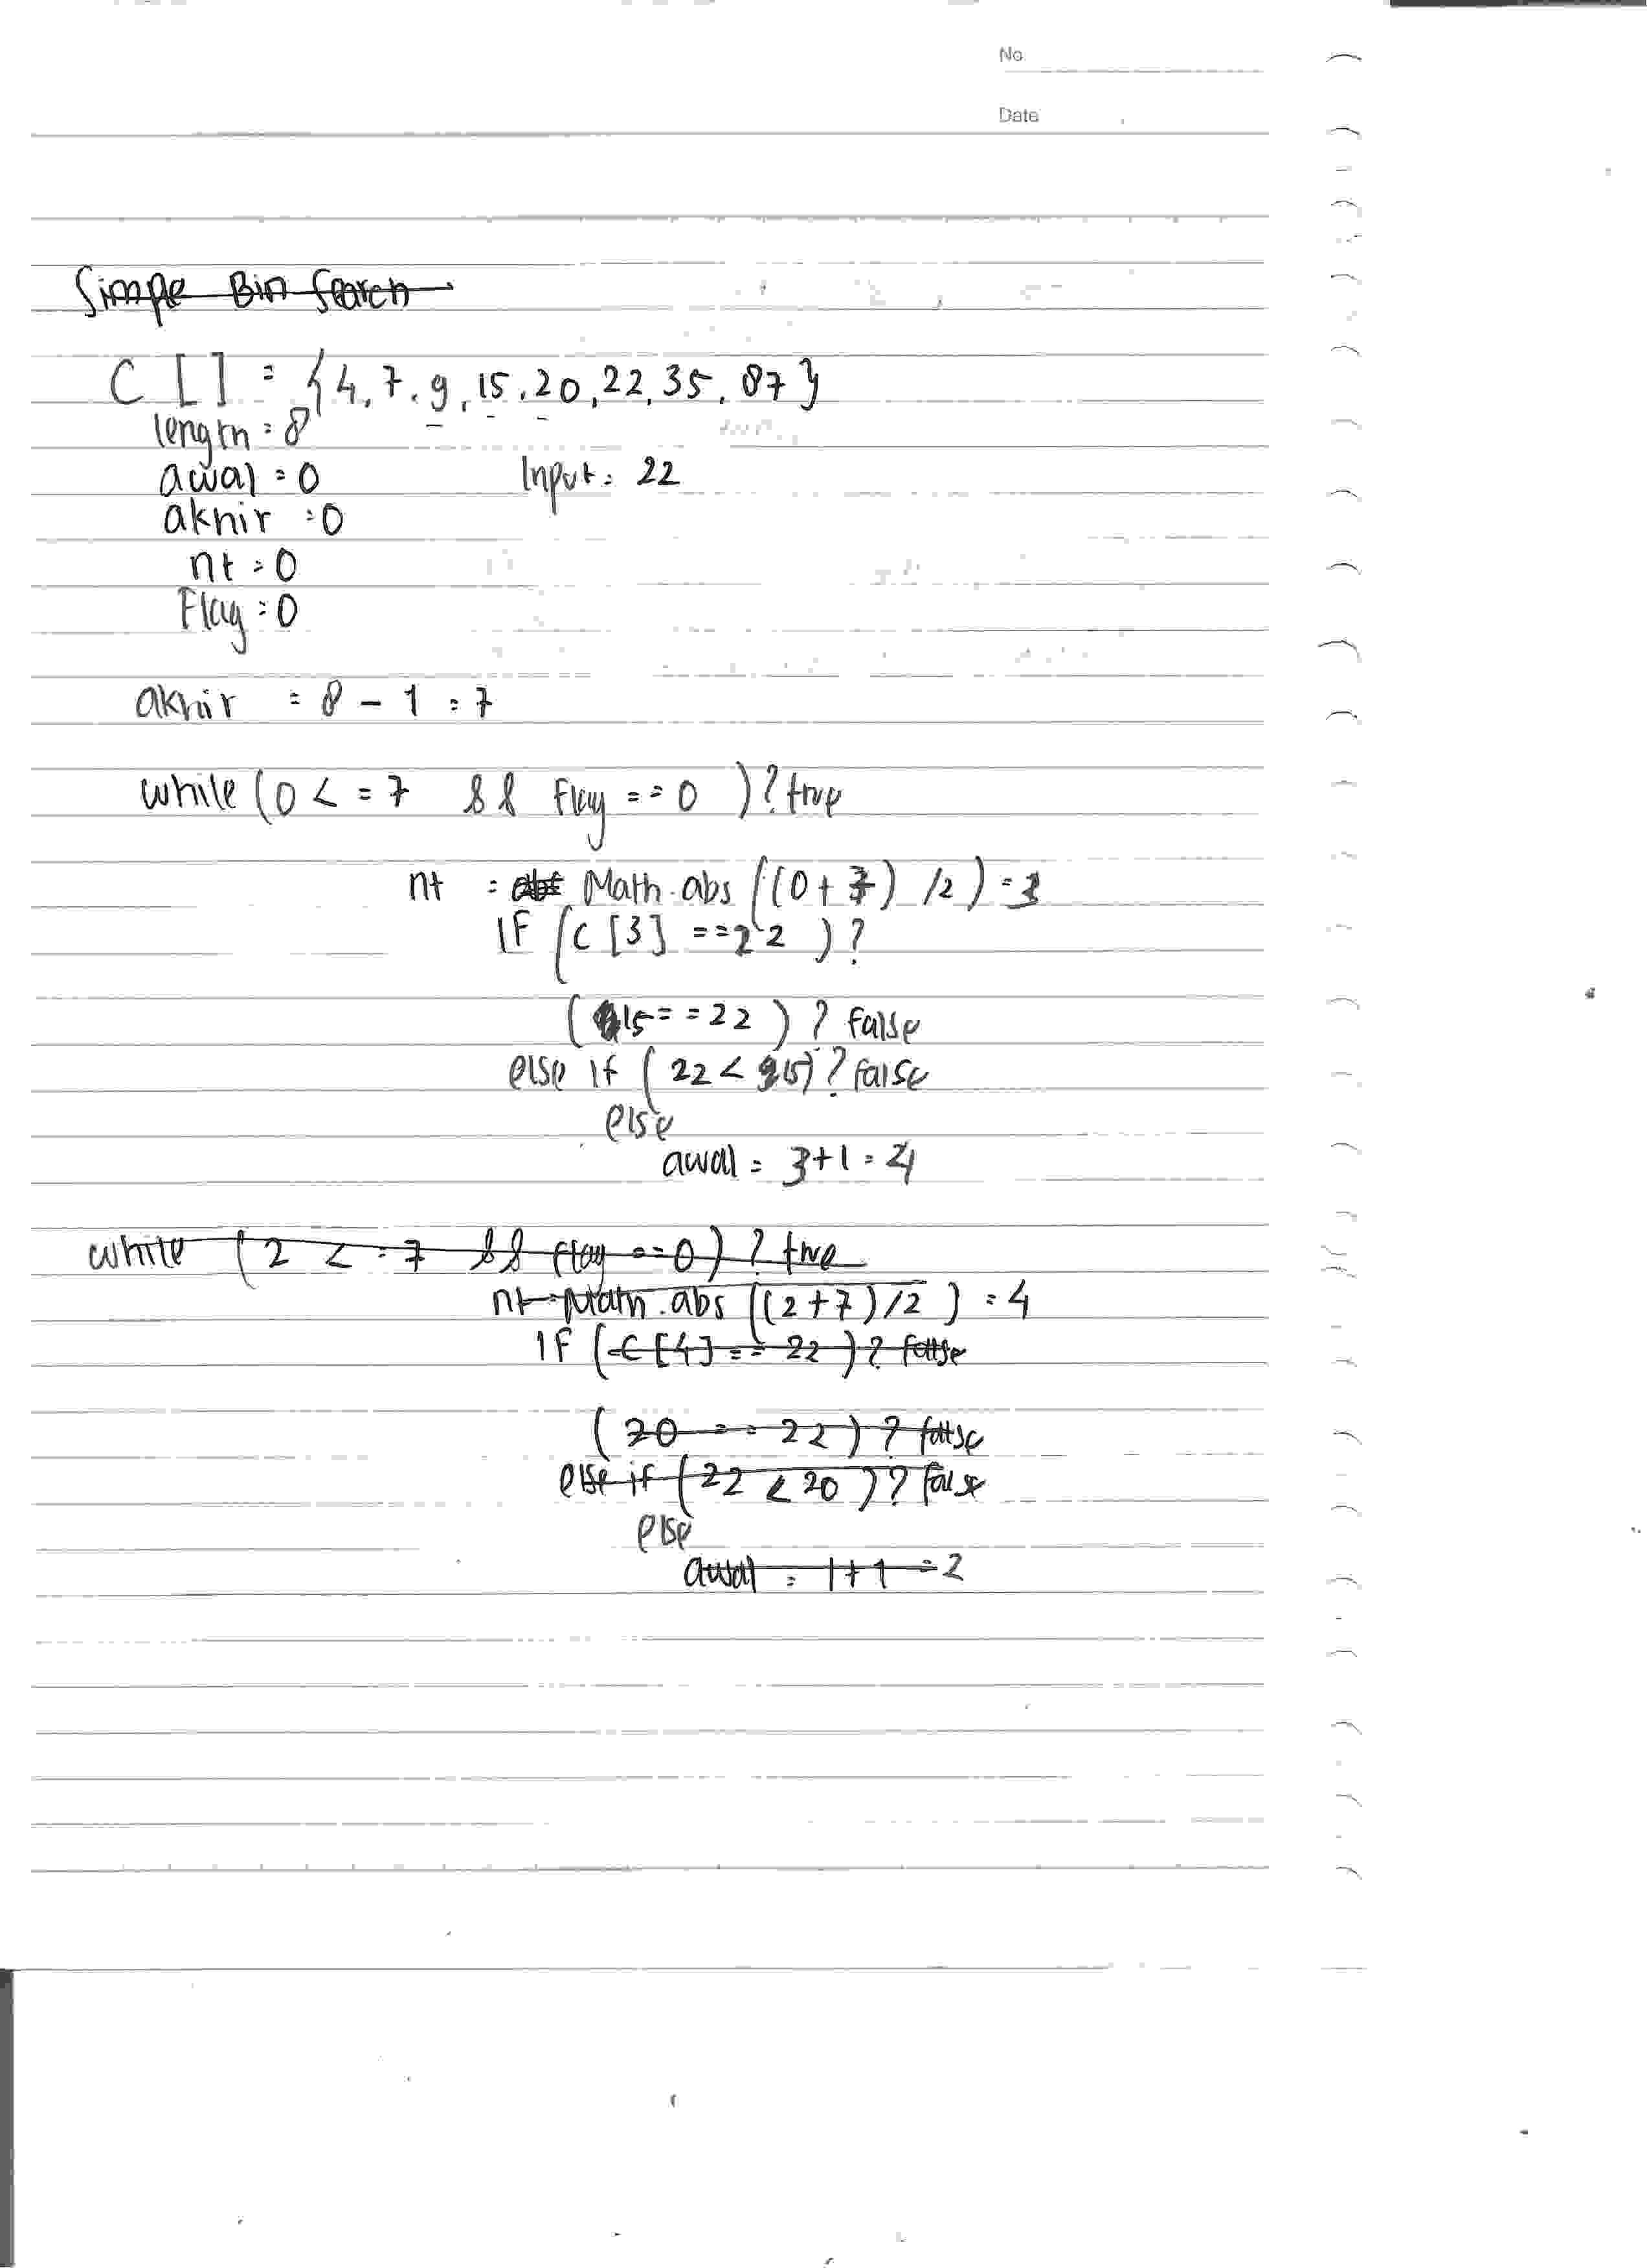 No.
Date
Simple Bin Search
C [ ] = {4, 7, 9, 15, 20, 22, 35, 87}
length = 8
awal = 0 Input = 22
akhir = 0
nt = 0
Flag = 0
akhir = 8 - 1 = 7
while (0 <= 7 && Flag == 0) ? true
nt = Math.abs ((0+7) /2) = 3
IF (C [3] == 22 ) ?
(15 == 22 ) ? False
else if ( 22 < 15) ? false
else
awal = 3+1 = 4
while (2 <= 7 && flag == 0) ? true
nt = Math.abs ((2+7)/2) = 4
IF (C [4] == 22 ) ? false
(20 == 22 ) ? false
else if (22 < 20 ) ? false
else
awal = 1+1 = 2